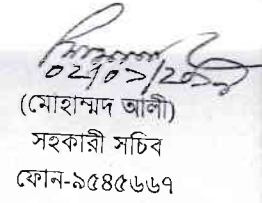 ০২/০১/২০
(মোহাম্মদ আলী)
সহকারী সচিব
ফোন-৯৫৪৫৬৬৭